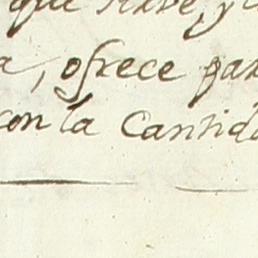 que
a, ofrece par
con la Cantida